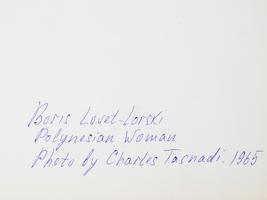 Boris Lovet-Lorski
Polynesian Woman
Photo by Charles Tasnadi. 1965